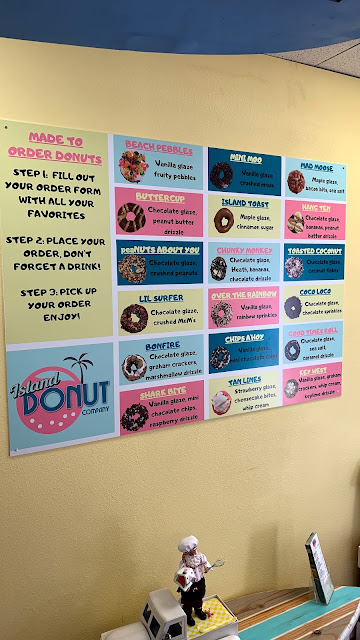 MADE TO
ORDER DONUTS
STEP 1: FILL OUT
YOUR ORDER FORM
WITH ALL YOUR
FAVORITES
STEP 2: PLACE YOUR
ORDER, DON'T
FORGET A DRINK!
STEP 3: PICK UP
YOUR ORDER
ENJOY!
Island
DONUT
COMPANY
BEACH PEBBLES
Vanilla glaze
fruity pebbles
MINI MOO
Vanilla glaze
crushed oreos
MAD MOOSE
Maple glaze,
bacon bits, sea salt
BUTTERCUP
Chocolate glaze,
peanut butter
drizzle
ISLAND TOAST
Maple glaze,
cinnamon sugar
HANG TEN
Chocolate glaze,
bananas, peanut
butter drizzle
peaNUTS ABOUT YOU
Chocolate glaze,
crushed peanuts
CHUNKY MONKEY
Chocolate glaze,
Heath, bananas,
chocolate drizzle
TOASTED COCONUT
Chocolate glaze,
coconut flakes
LIL SURFER
Chocolate glaze,
crushed M&M's
OVER THE RAINBOW
Vanilla glaze,
rainbow sprinkles
COCO LOCO
Chocolate glaze,
chocolate sprinkles
BONFIRE
Chocolate glaze,
graham crackers,
marshmallow drizzle
CHIPS AHOY
Vanilla glaze,
mini chocolate chips
GOOD TIMES ROLL
Chocolate glaze,
sea salt,
caramel drizzle
SHARK BITE
Vanilla glaze, mini
chocolate chips,
raspberry drizzle
TAN LINES
Strawberry glaze,
cheesecake bites,
whip cream
KEY WEST
Vanilla glaze, graham
crackers, whip cream,
keylime drizzle